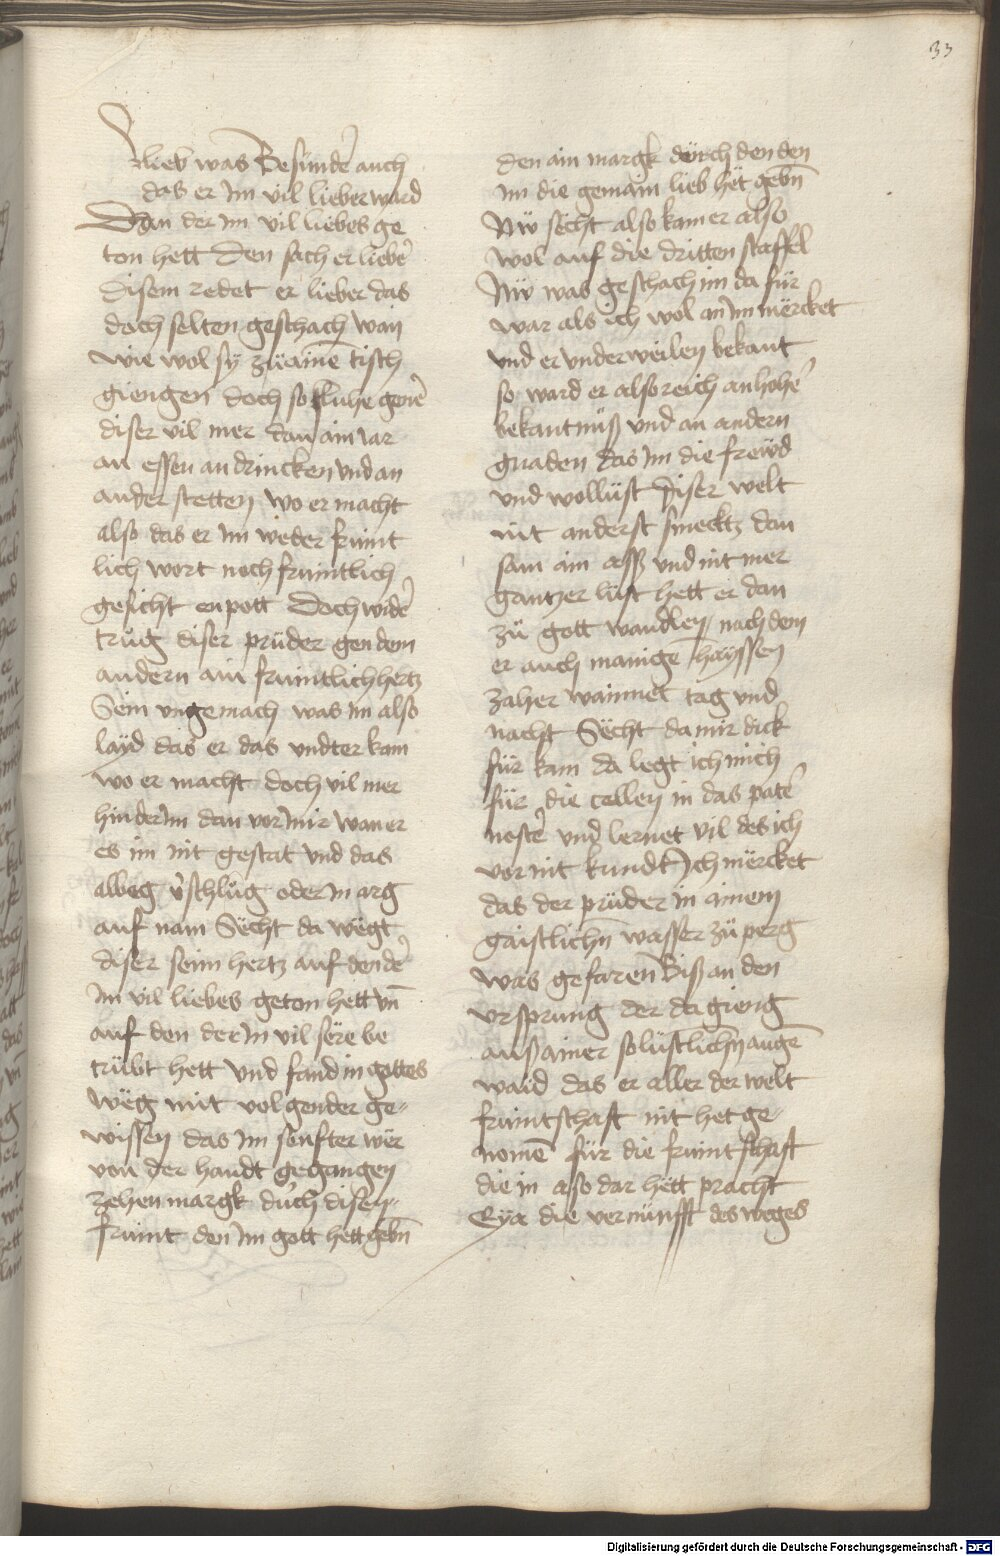 33
lieb was Besunder auch
das er im vil lieber ward
Dan der im vil liebes ge
ton hett Den sach er lieber
disem redet er lieber das
doch selten geschach wan
wie wol sÿ zü aine tisch
giengen doch so fluhe gener
diser vil mer dan ain Jar
an essen an drincken vnd an
ander stetten wo er macht
also das er im weder frunt
lich wort noch fruntlich
gesicht enpott Doch wider
trüg diser prüder gen dem
andern ain fruntlich hertz
Sein vngemach was im also
laÿd das er das vndter kam
wo er macht doch vil mer
hinder im dan vor im wan er
es im nit gestat vnd das
alweg verschlüg oder in arg
auf nam Sëcht da wëgt
diser seim hertz auf den der
im vil liebes geton hett vn̄
auf den der in vil sëre be
trübt hett vnd fand in gottes
wëg mit volgender ge-
wissen das im senfter wër
von der handt gegangen
zehen margk duch disen
frunt den im gott hett gebn̄
den ain margk dürch den den
im die gemain lieb hët gebn̄
Nw sëcht also kam er also
wol auf die dritten staffel
Nw was geschach im da für
war als ich wol an im mërcket
vnd er vnderweilen bekant
so ward er also reich an hoher
bekantnüß vnd an andern
gnaden das im die frewd
vnd wollüst diser welt
nit anderst smecktz dan
sam ain aß vnd nit mer
gantzer lüst hett er dan
zü gott wandlen nach dem
er auch manige haÿssen
zaher wainnet tag vnd
nacht Sëcht da mir dick
für kam da legt ich mich
für die cellen in das pater
noster vnd lernet vil des ich
vor nit kundt Ich mërcket
das der prüder in ainem
gaistlichn̄ wasser zü perg
was gefaren Biß an den
vrsprung der da gieng
auß ainer so lüstlichn̄ augē
waid das er aller der welt
fruntschaft nit het ge-
nomē für die fruntschaft
die in also dar hëtt pracht
Eÿa die vernünfft des weges
Digitalisierung gefördert durch die Deutsche Forschungsgemeinschaft - DFG